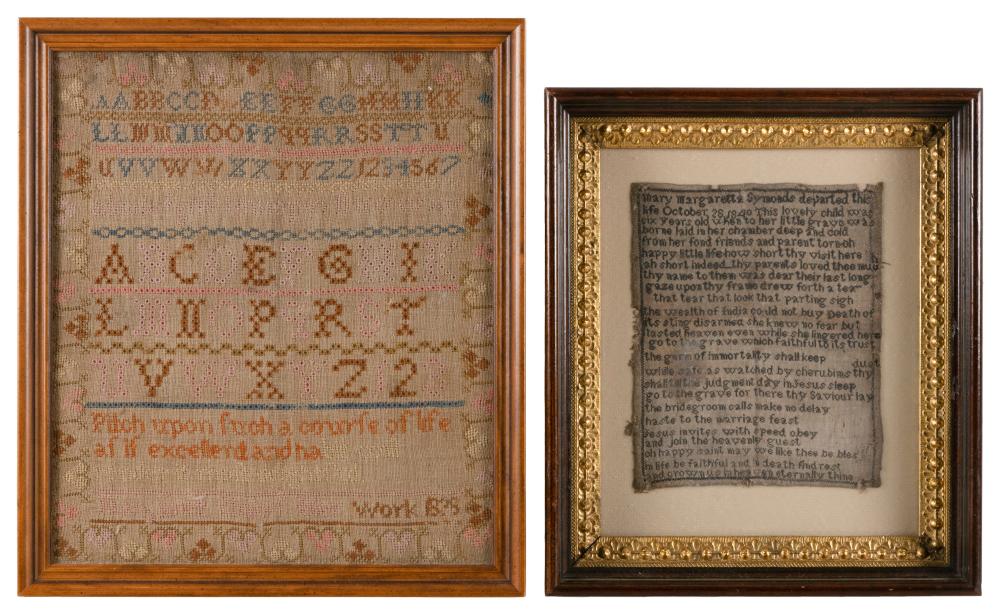 AABBCCD EEFFGGHHKK
LLMMNNOOPPQQRRSSTTU
UVVWWXXYYZZ1234567
A C E G I
L N P R T
V X Z 2
Pitch upon such a course of life
as is excellent and ha
Work 1825
Mary Margaretta Symonds departed this
life October 28 1840 This lovely child was
six years old when to her little grave was
borne laid in her chamber deep and cold
from her fond friends and parent torn oh
happy little life how short thy visit here
ah short indeed thy parents loved thee mu
thy name to them was dear their last long
gaze upon thy frame drew forth a tear
that tear that look that parting sigh
the wealth of India could not buy Death of
its sting disarmed she knew no fear but
tasted heaven even while she lingered here
go to the grave which faithful to its trust
the germ of immortality shall keep
dust
while safe as watched by cherubims thy
shall till the judgment day in Jesus sleep
go to the grave for there thy Saviour lay
the bridegroom calls make no delay
haste to the marriage feast
Jesus invites with speed obey
and join the heavenly guest
oh happy saint may we like thee be bles
in life be faithful and death find rest
and crown us in heaven eternally thine